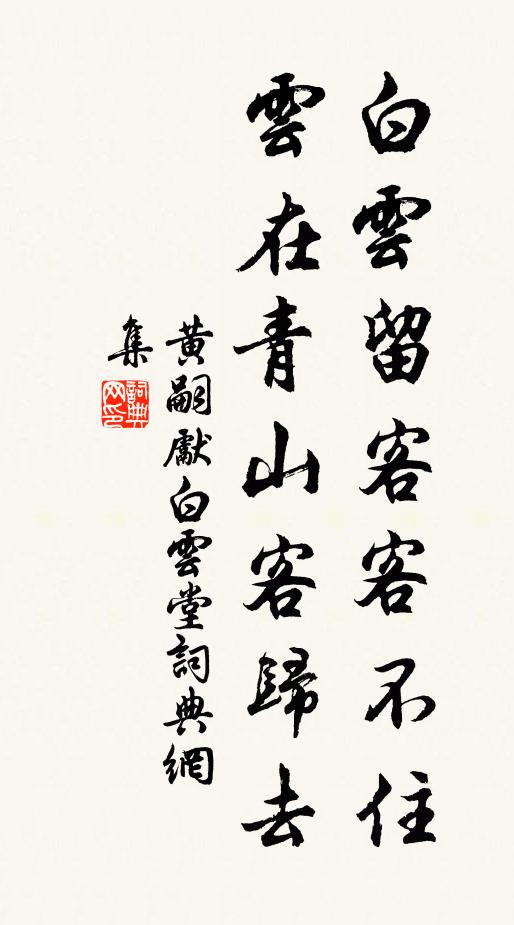 白雲留客客不住
雲在青山客歸去
黃嗣獻白雲堂詞典網
集
詞典網印